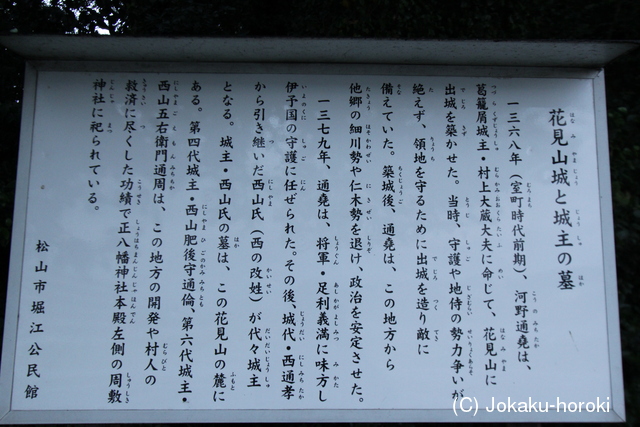 花見山城と城主の墓
一三六八年（室町時代前期）、河野通堯は、
葛籠屑城主・村上大蔵大夫に命じて、花見山に
出城を築かせた。当時、守護や地侍の勢力争いが
絶えず、領地を守るために出城を造り敵に
備えていた。築城後、通堯は、この地方から
他郷の細川勢や仁木勢を退け、政治を安定させた。
一三七九年、通堯は、将軍・足利義満に味方し
伊予国の守護に任ぜられた。その後、城代・西通孝
から引き継いだ西山氏（西の改姓）が代々城主
となる。城主・西山氏の墓は、この花見山の麓に
ある。第四代城主・西山肥後守通倫、第六代城主・
西山五右衛門通周は、この地方の開発や村人の
救済に尽くした功績で正八幡神社本殿左側の周敷
神社に祀られている。
松山市堀江公民館
(C) Jokaku-horoki